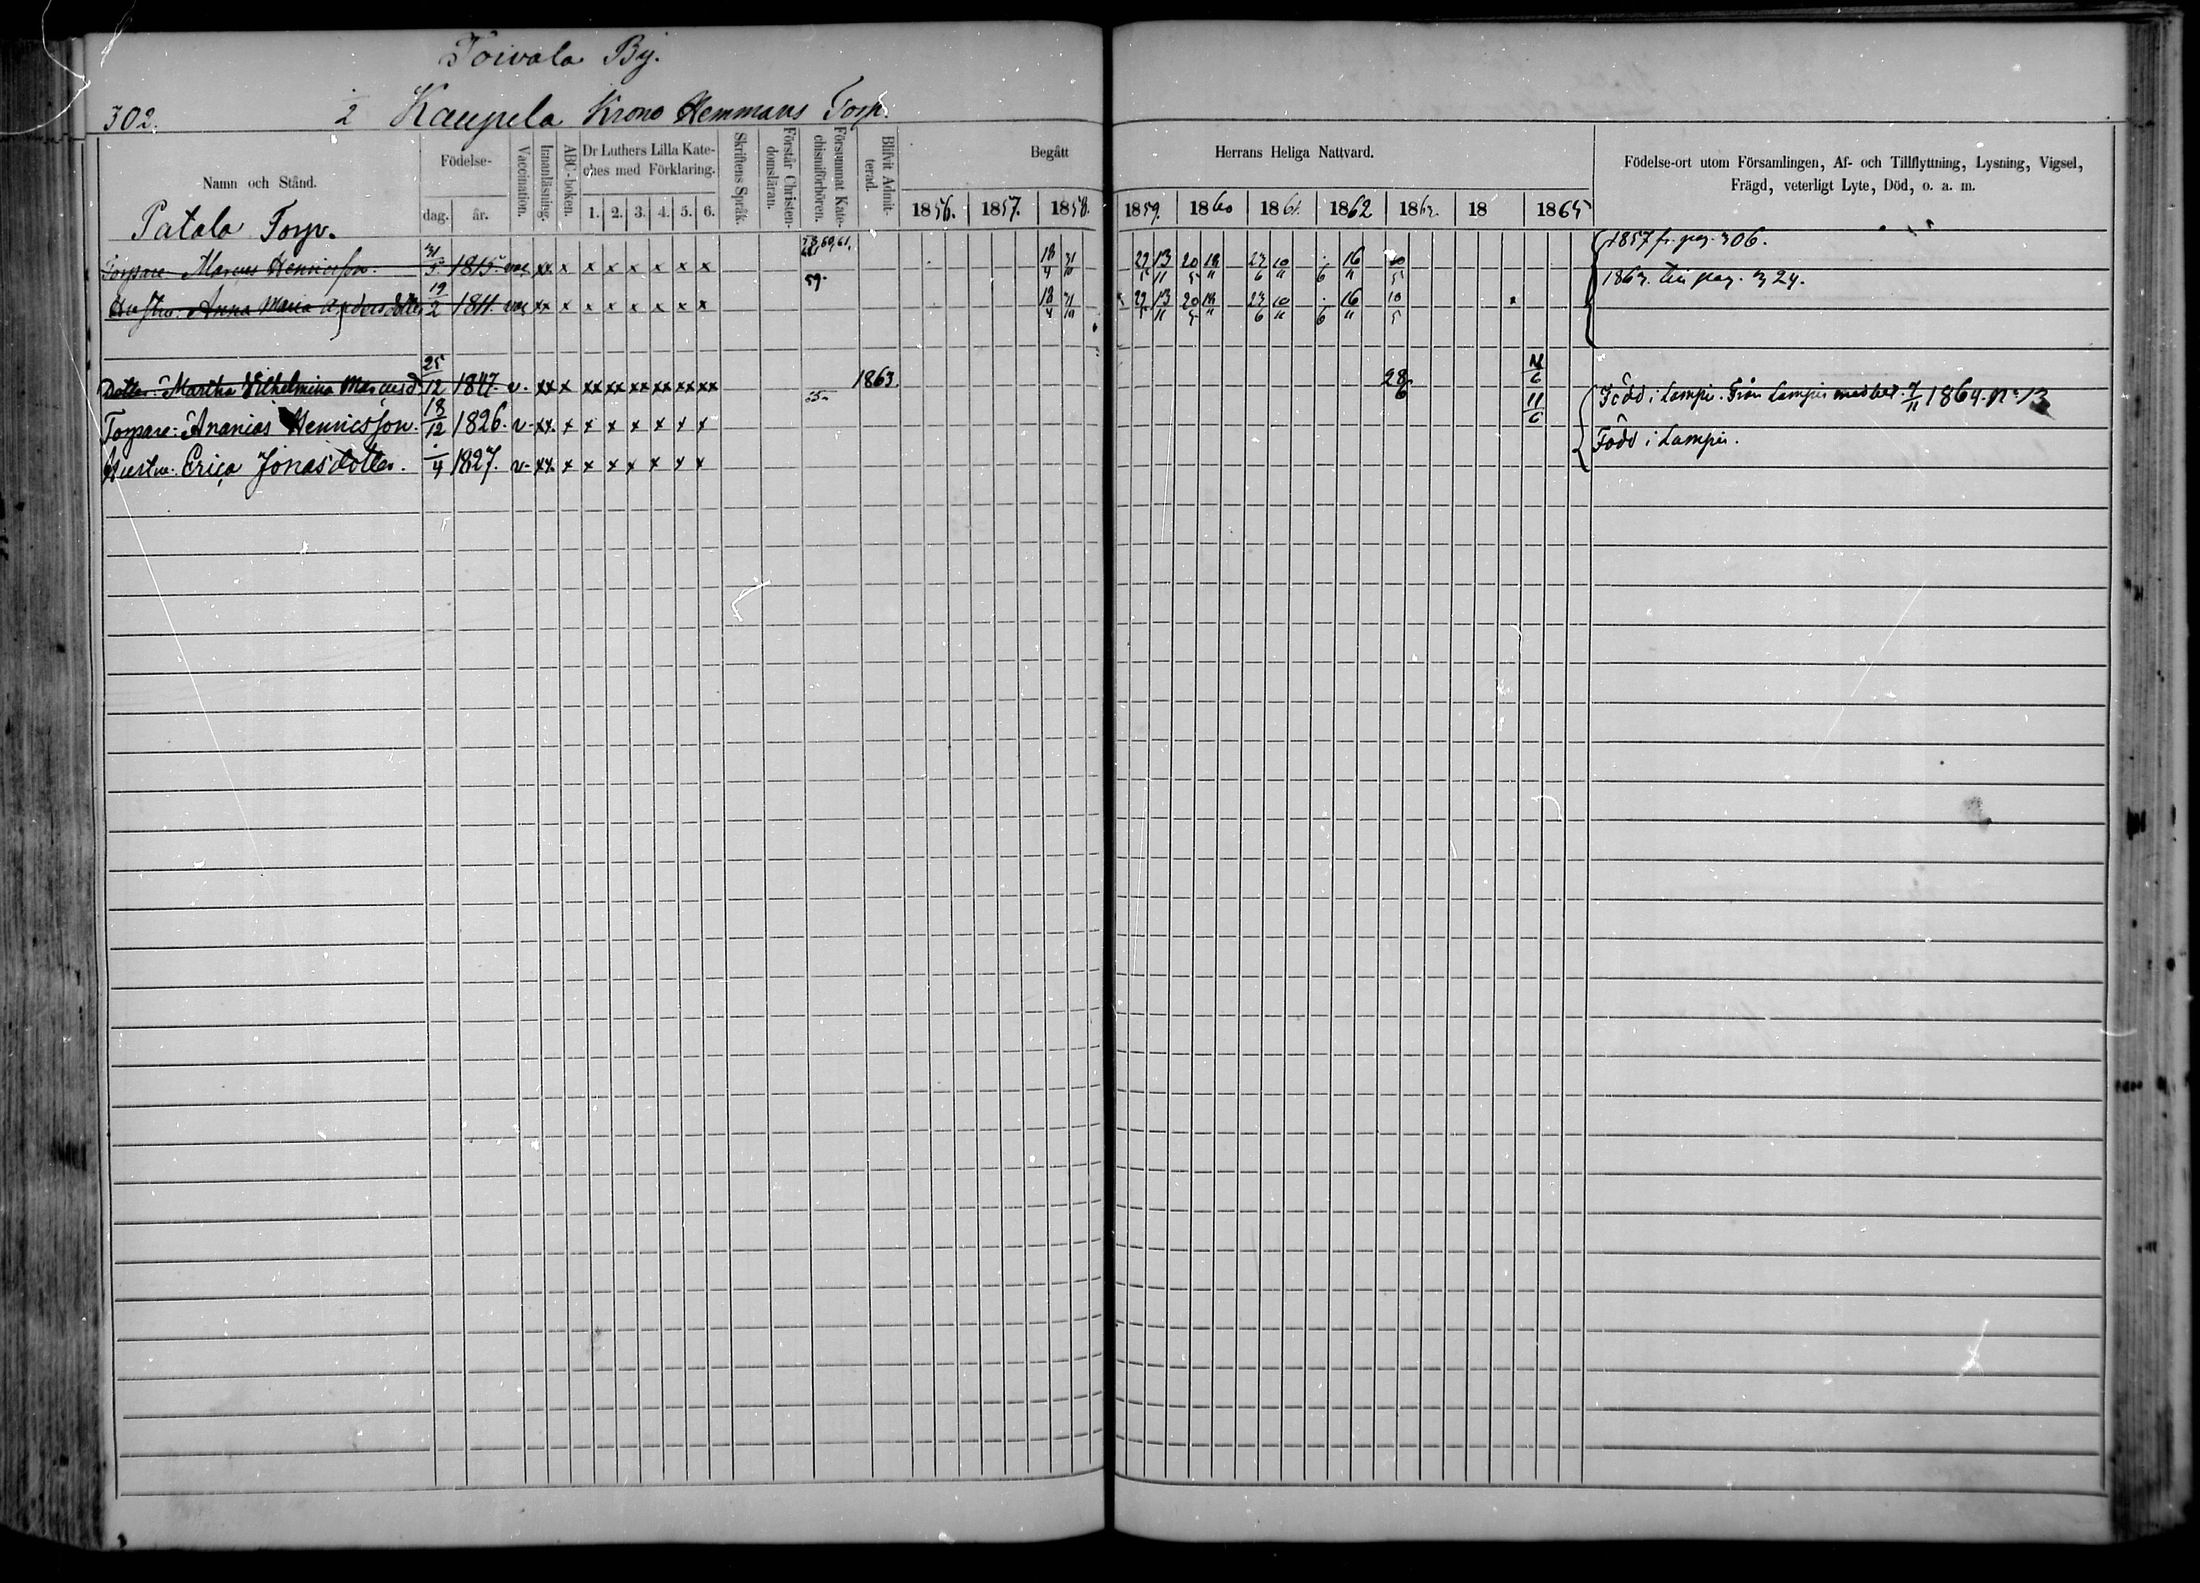 Toivola By.
302. 2 Kaupela Krono Hemmans Torp.
Namn och Stånd.
Födelse-
dag. år.
Vaccination.
Innanläsning.
ABC-boken.
Dr Luthers Lilla Kate-
ches med Förklaring.
1. 2. 3. 4. 5. 6.
Skriftens Språk.
Förstår Christen-
domsläran.
Försummat Kate-
chismiförhören.
Blifvit Admit-
terad.
Begått Herrans Heliga Nattvard.
1856. 1857. 1858. 1859. 1860 1861. 1862 1863. 18 1865
Födelse-ort utom Församlingen, Af- och Tillflyttning, Lysning, Vigsel,
Frägd, veterligt Lyte, Död, o. a. m.
Patala Torp.
Torpare Marcus Henricsson. 31/5 1815. vac xx x x x x x x x 18/4 31/10 22/5 13/11 20/5 18/" 23/6 10/" 6 16/" 10/5 1857 fr. pag. 306.
59.
Hustru: Anna Maria Andersdotter 19/2 1811. vac xx x x x x x x x 18/4 31/10 22/5 13/11 20/5 18/" 23/6 10/" 6 16/" 10/5 1863. till pag. 324.
Dotter: Martha Vilhelmina Marcusd. 25/12 1847 v. xx x xx xx xx xx xx xx 1863. 28/6
Torpare: Ananias Henricsson. 18/12 1826. v. xx. x x x x x x x 11/6 Född i Lampis. Från Lampis med bet. 7/11 1864. No 13
Hustru. Erica Jonasdotter. 4 1827. v. xx. x x x x x x x 11/6 Född i Lampis.